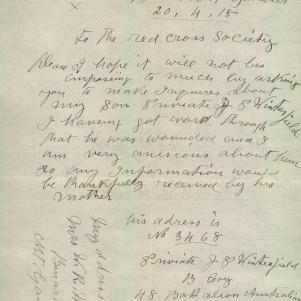 20.4.18
To The Red Cross Society
Please I hope it will not be
imposing to much by asking
you to make Inquires about
my Son Private J S Winterfield
I having got word through
that he was wounded and I
am very anixious about him
so any Information would
be thankfully received by his
mother
his adress is
No 3468
Private J S Winterfield
B Coy
48 Battalion Australian
My address
Mrs